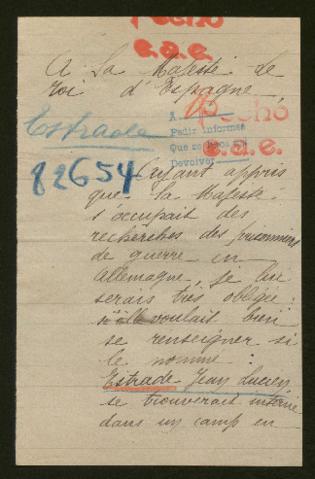 Pecho
e.o.e.
A La Majesté de
roi d'Espagne
Estrade
Pecho
e.o.e.
A
Pedir informes
Que se
Devolver
82654
Ayant appris
que la Majesté
s'occupait des
recherches des prisonniers
de guerre en
Allemagne, je lui
serais très obligée
voulait bien
se renseigner si
le nommé :
Estrade Jean Lucien
se trouverait interné
dans un camp en